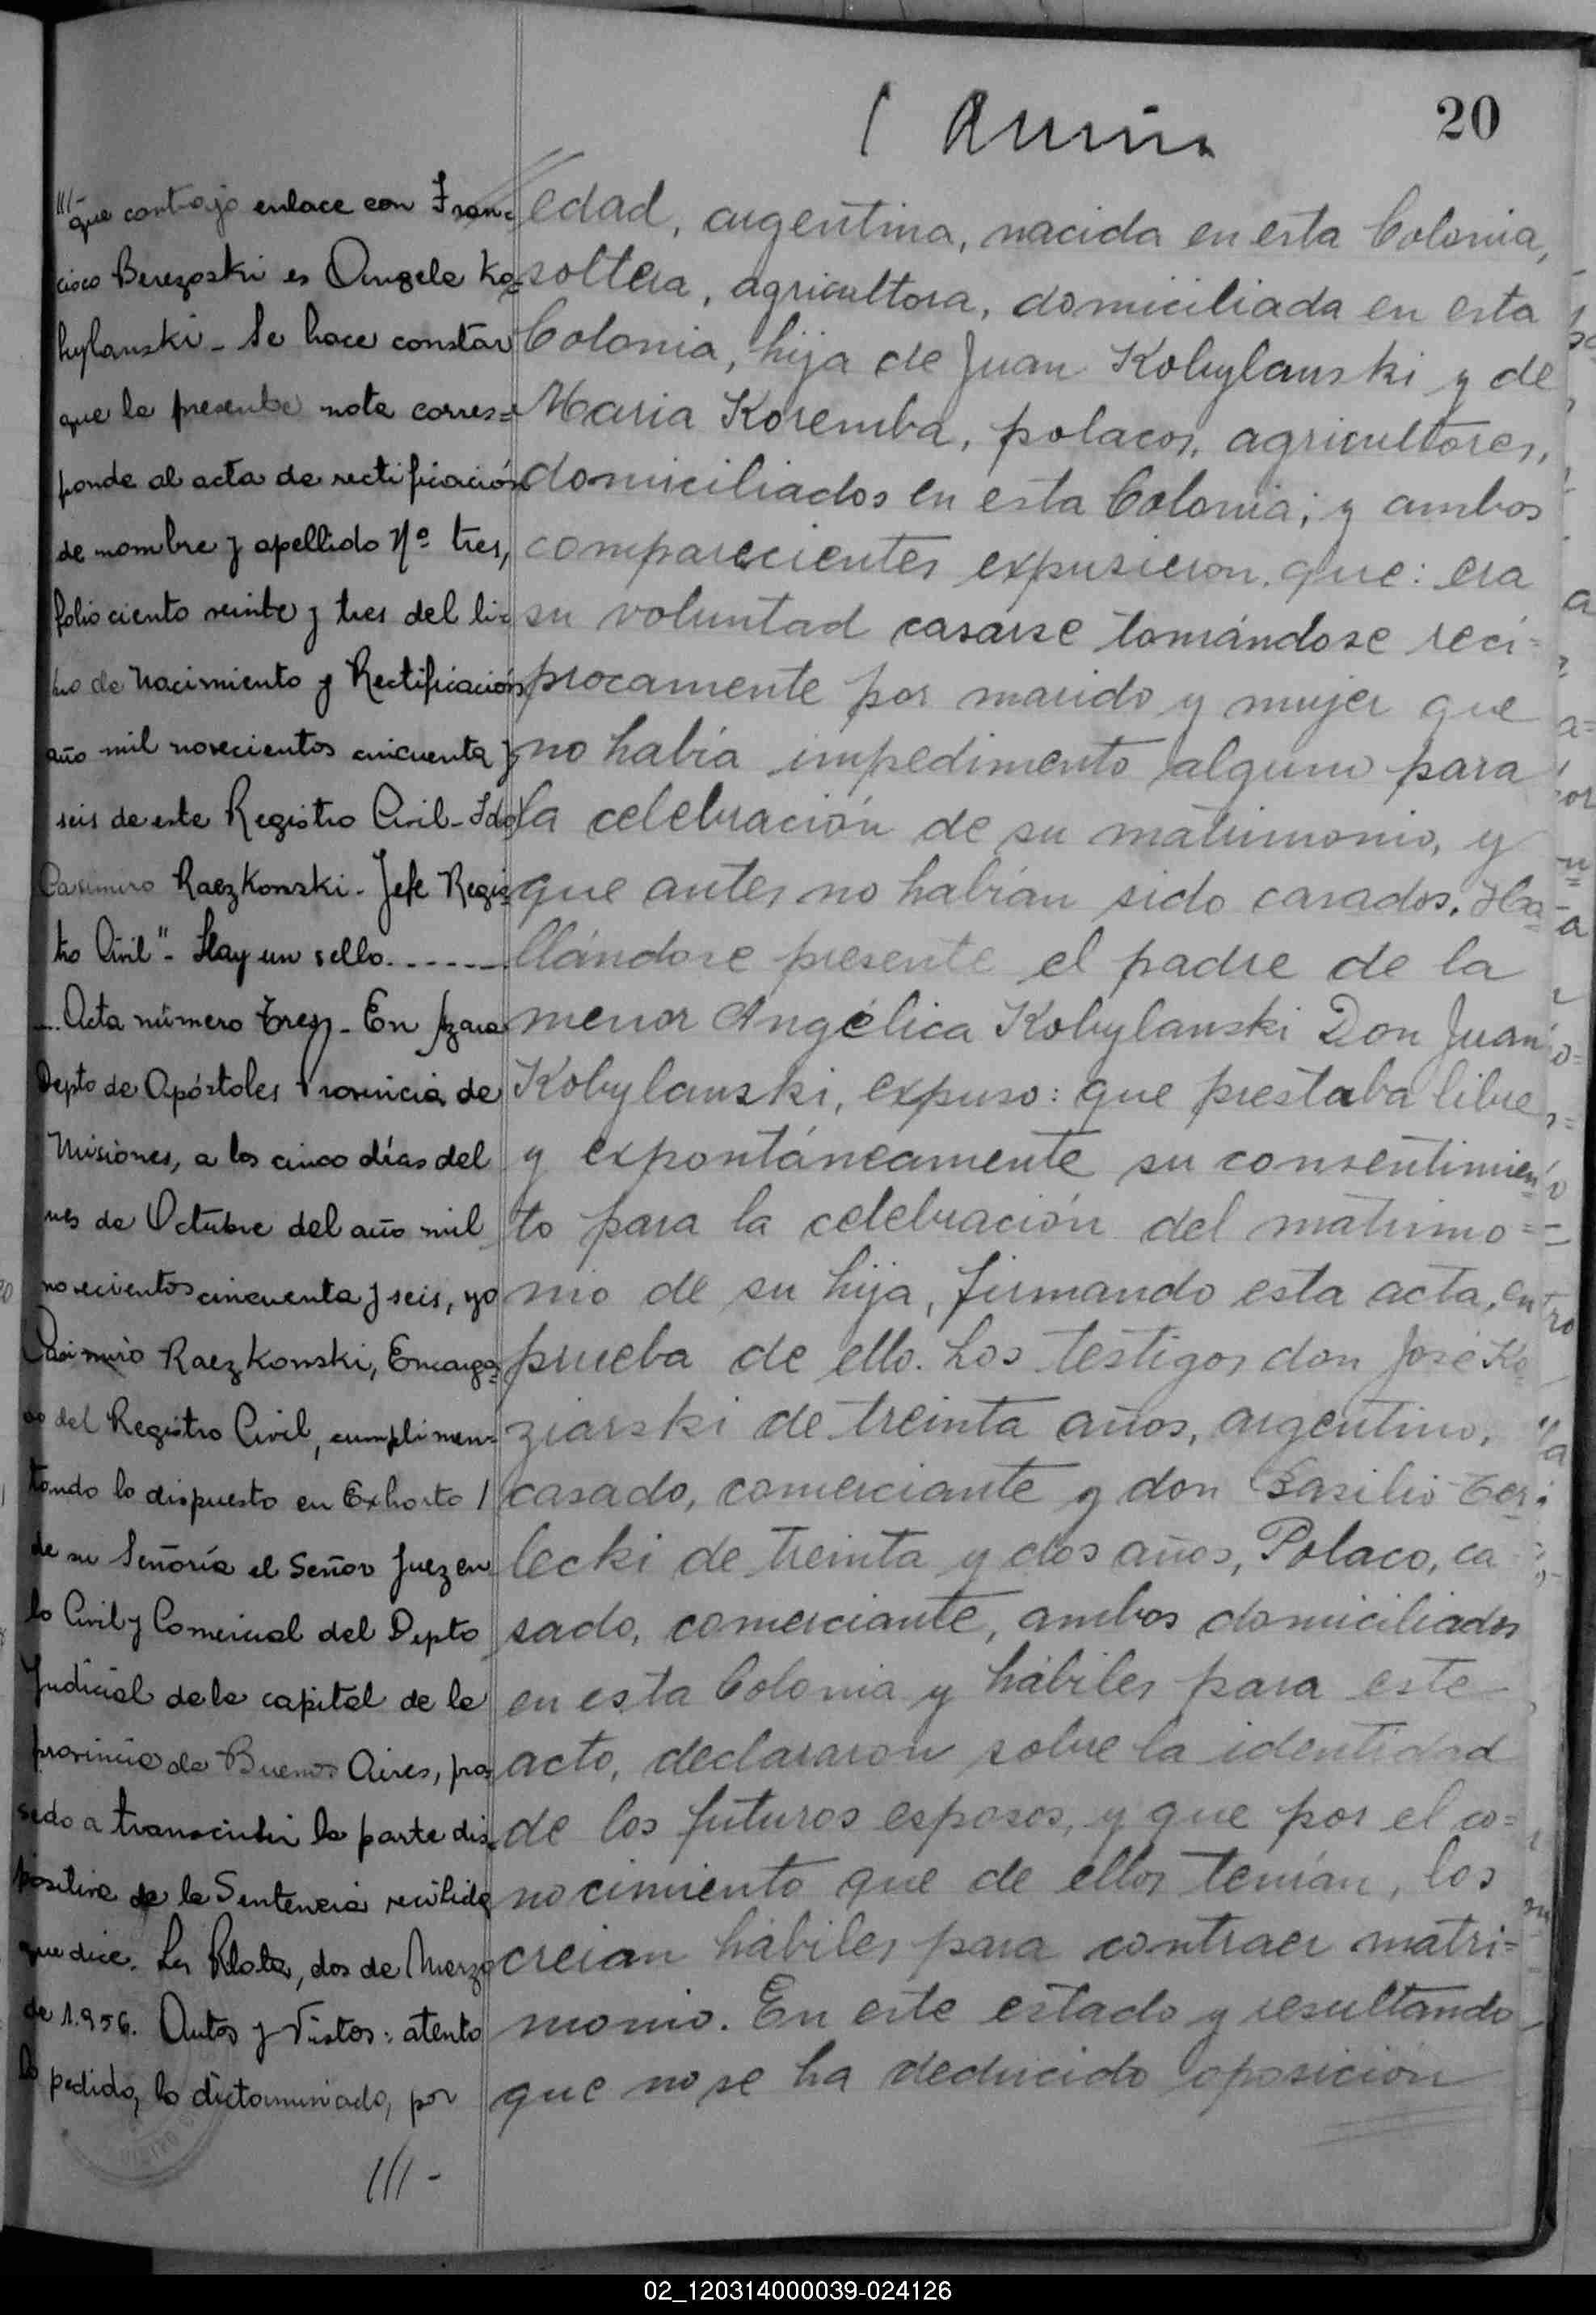 20
///- que contrajo enlace con Fran=
cisco Berezoski es Angela Ko=
bylanski - Se hace constar
que la presente nota corres=
ponde al acta de rectificación
de nombre y apellido Nº tres,
folio ciento veinte y tres del li=
bro de Nacimiento y Rectificación
año mil novecientos cincuenta y
seis de este Registro Civil - Fdo
Casimiro Raczkonski - Jefe Regis=
tro Civil" - Hay un sello.------
... Acta número Tres - En Azara
Depto de Apóstoles Provincia de
Misiones, a los cinco días del
mes de Octubre del año mil
novecientos cincuenta y seis, yo
Casimiro Raczkonski, Encarga=
do del Registro Civil, cumplimen=
tando lo dispuesto en Exhorto /
de su Señoría el Señor Juez en
lo Civil y Comercial del Depto
Judicial de la capital de la
provincia de Buenos Aires, pro
sedo a transcribir la parte dis=
positiva de la Sentencia recibida
que dice. La Plata, dos de Marzo
de 1.956. Autos y Vistos: atento
lo pedido, lo dictaminado, por
///-
edad, argentina, nacida en esta Colonia,
soltera, agricultora, domiciliada en esta
Colonia, hija de Juan Kobylanski y de
Maria Koremba, polacos, agricultores,
domiciliados en esta Colonia; y ambos
comparecientes expusieron que: era
su voluntad casarse tomándose reci=
procamente por marido y mujer que
no había impedimento alguno para
la celebración de su matrimonio, y
que antes no habían sido casados. Ha=
llándose presente el padre de la
menor Angélica Kobylanski Don Juan
Kobylanski, expuso: que prestaba libre
y expontáneamente su consentimien=
to para la celebración del matrimo=
nio de su hija, firmando esta acta, en
prueba de ello. Los testigos don José Ko=
ziarski de treinta años, argentino,
casado, comerciante y don Basilio Ter=
lecki de treinta y dos años, Polaco, ca
sado, comerciante, ambos domiciliados
en esta Colonia y hábiles para este
acto, declararon sobre la identidad
de los futuros esposos, y que por el co=
nocimiento que de ellos tenían, los
creían hábiles para contraer matri=
monio. En este estado y resultando
que no se ha deducido oposición
02_120314000039-024126